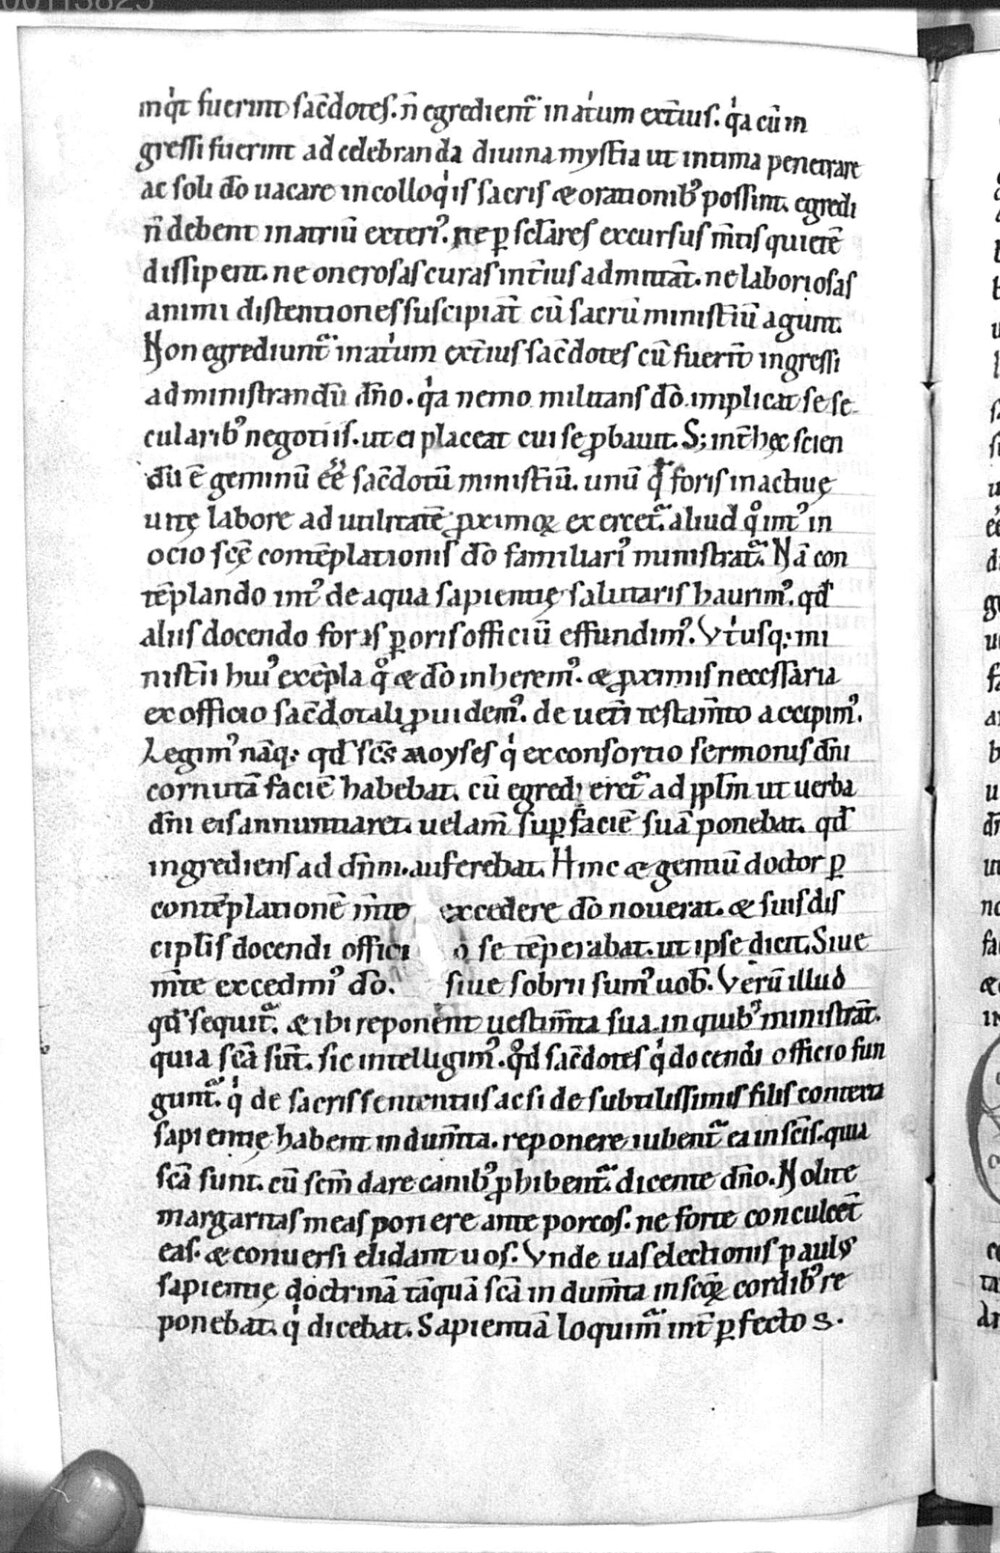 inq̇t fuerint sac̄dotes. n̄ egredient᷑ in atͥum ext̄ius. qͥa cū in
gressi fuerint ad celebranda diuina myst̄ia ut intima penetrare
ac soli dō uacare in colloqͥis sacris & orationib; possint. egredi
n̄ debent in atriū exteri᷒. ne ꝑ sclāres excursus m̄tis quietē
dissipent. ne onerosas curas int̄ius admittāt. ne laboriosas
animi distentiones suscipiāt cū sacrū minist̄iū agunt.
Non egrediunt᷑ in atͥum ext̄ius sac̄dotes cū fuerīt ingressi
ad ministrandū dn̄o. qͥa nemo militans dō implicat se se
cularib; negotiis. ut ei placeat cui se ꝓbauit. S; int̄ hęc scien
dū ē geminū ēē sac̄dotū minist̄iū. unū qͦ foris in actiuę
uitę labore ad utilitatē ꝓximoꝝ exercet᷑. aliud qͦ int᷒ in
ocio scę̄ contēplationis dō familiari᷒ ministrat᷑. Nā con
tēplando int᷒ de aqua sapientię salutaris haurim᷒. qd̄
aliis docendo foras ꝑ oris officiū effundim᷒. Vtͥusq; mi
nist̄ii hui᷒ exēpla qͦ & dō inherem᷒. & ꝓximis necessaria
ex officio sac̄dotali ꝓuidem᷒. de uet̄i testam̄to accipim᷒.
Legim᷒ nāq; qd̄ sc̄s moyses qͥ ex consortio sermonis dn̄i
cornutā faciē habebat. cū egrederet᷑ ad ppl̄m ut uerba
dn̄i eis annuntiaret. uelam̄ suꝑ faciē suā ponebat. qd̄
ingrediens ad dn̄m. auferebat. Hinc & gentiū doctor ꝑ
contēplationē m̄te excedere dō nouerat. & suis dis
cipl̄is docendi offici o se tēperabat. ut ipse dicit. Siue
m̄te excedim᷒ dō. siue sobrii sum᷒ uob̄. Verū illud
qd̄ sequit᷑. & ibi reponent uestim̄ta sua. in quib; ministrāt.
quia sc̄a sūt. sic intelligim᷒. qd̄ sac̄dotes qͥ docendi officio fun
gunt᷑. qͥ de sacris sententiis ac si de subtilissimis filis contexta
sapientię habent indum̄ta. reponere iubent᷑ ea in sc̄is. quia
sc̄a sunt. cū sc̄m dare canib; ꝓhibent᷑. dicente dn̄o. Nolite
margaritas meas ponere ante porcos. ne forte conculcēt
eas. & conuersi elidant uos. Vnde uas electionis paulus
sapientię doctrinā tāquā sc̄a indum̄ta in scōꝝ cordib; re
ponebat. qͥ dicebat. Sapientiā loquim᷑ int̄ ꝑfectos.